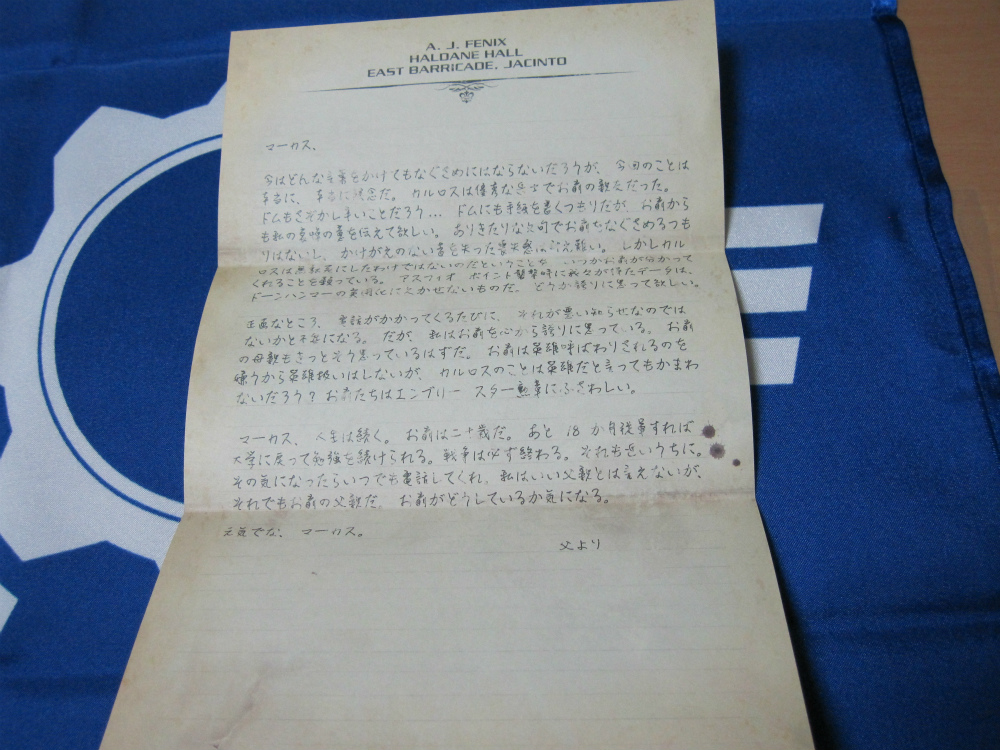 A. J. FENIX
HALDANE HALL
EAST BARRICADE, JACINTO
マーカス、
今はどんな言葉をかけてもなぐさめにはならないだろうが、今回のことは
本当に、本当に残念だ。カルロスは優秀な兵士でお前の親友だった。
ドムもさぞかし辛いことだろう... ドムにも手紙を書くつもりだが、お前から
も私の哀悼の意を伝えて欲しい。ありきたりな文句でお前をなぐさめるつも
りはないし、かけがえのない者を失った喪失感は計え難い。しかしカル
ロスは無駄死にしたわけではないのだということを、いつかお前が分かって
くれることを願っている。アスフォ ポイント襲撃時に我々が得たデータは、
ドーンハンマーの実用化に欠かせないものだ。どうか誇りに思って欲しい。
正直なところ、電話がかかってくるたびに、それが悪い知らせなのでは
ないかと不安になる。だが、私はお前を心から誇りに思っている。お前
の母親もきっとそう思っているはずだ。お前は英雄呼ばわりされるのを
嫌うから英雄扱いはしないが、カルロスのことは英雄だと言ってもかまわ
ないだろう？お前たちはエンブリー スター勲章にふさわしい。
マーカス、人生は続く。お前は二十歳だ。あと 18 か月従軍すれば
大学に戻って勉強を続けられる。戦争は必ず終わる。それも近いうちに。
その気になったらいつでも電話してくれ。私はいい父親とは言えないが、
それでもお前の父親だ。お前がどうしているか気になる。
元気でな、マーカス。
父より